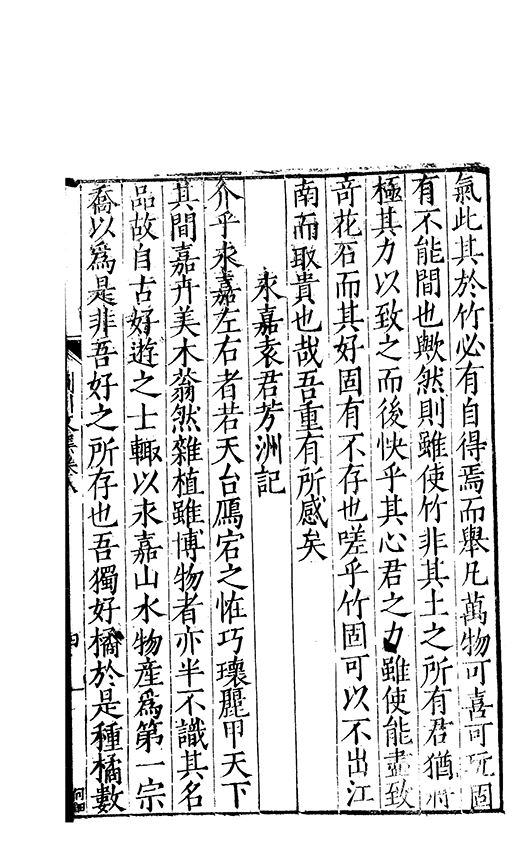 氣此其於竹必有自得焉而舉凡萬物可喜可玩固
有不能間也歟然則雖使竹非其土之所有君猶將
極其力以致之而後快乎其心君之力雖使能盡致
竒花石而其好固有不存也嗟乎竹固可以不出江
南而取貴也哉吾重有所感矣
永嘉袁君芳洲記
介乎永嘉左右者若天台鴈宕之恠巧瓌麗甲天下
其間嘉卉美木蓊然雜植雖博物者亦半不識其名
品故自古好遊之士輙以永嘉山水物產爲第一宗
喬以爲是非吾好之所存也吾獨好橘於是種橘數